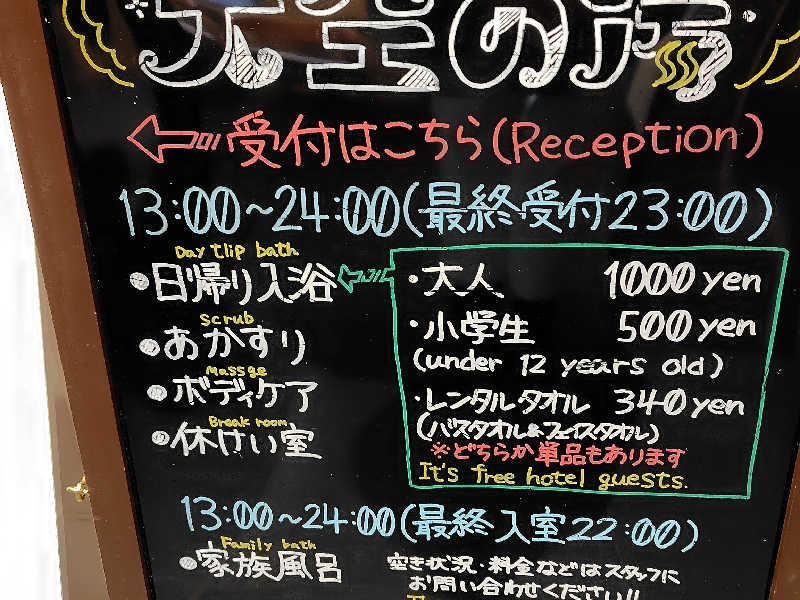 天空の湯
受付はこちら(Reception)
13:00~24:00(最終受付23:00)
Day tlip bath
・日帰り入浴
Scrub
・あかすり
Massge
・ボディケア
Break room
・休けい室
・大人 1000yen
・小学生 500yen
(under 12 years old)
・レンタルタオル 340yen
(バスタオル&フェイスタオル)
※どちらか単品もあります
It's free hotel guests.
13:00~24:00(最終入室22:00)
Family bath
・家族風呂
空き状況・料金などはスタッフに
お問い合わせください!!